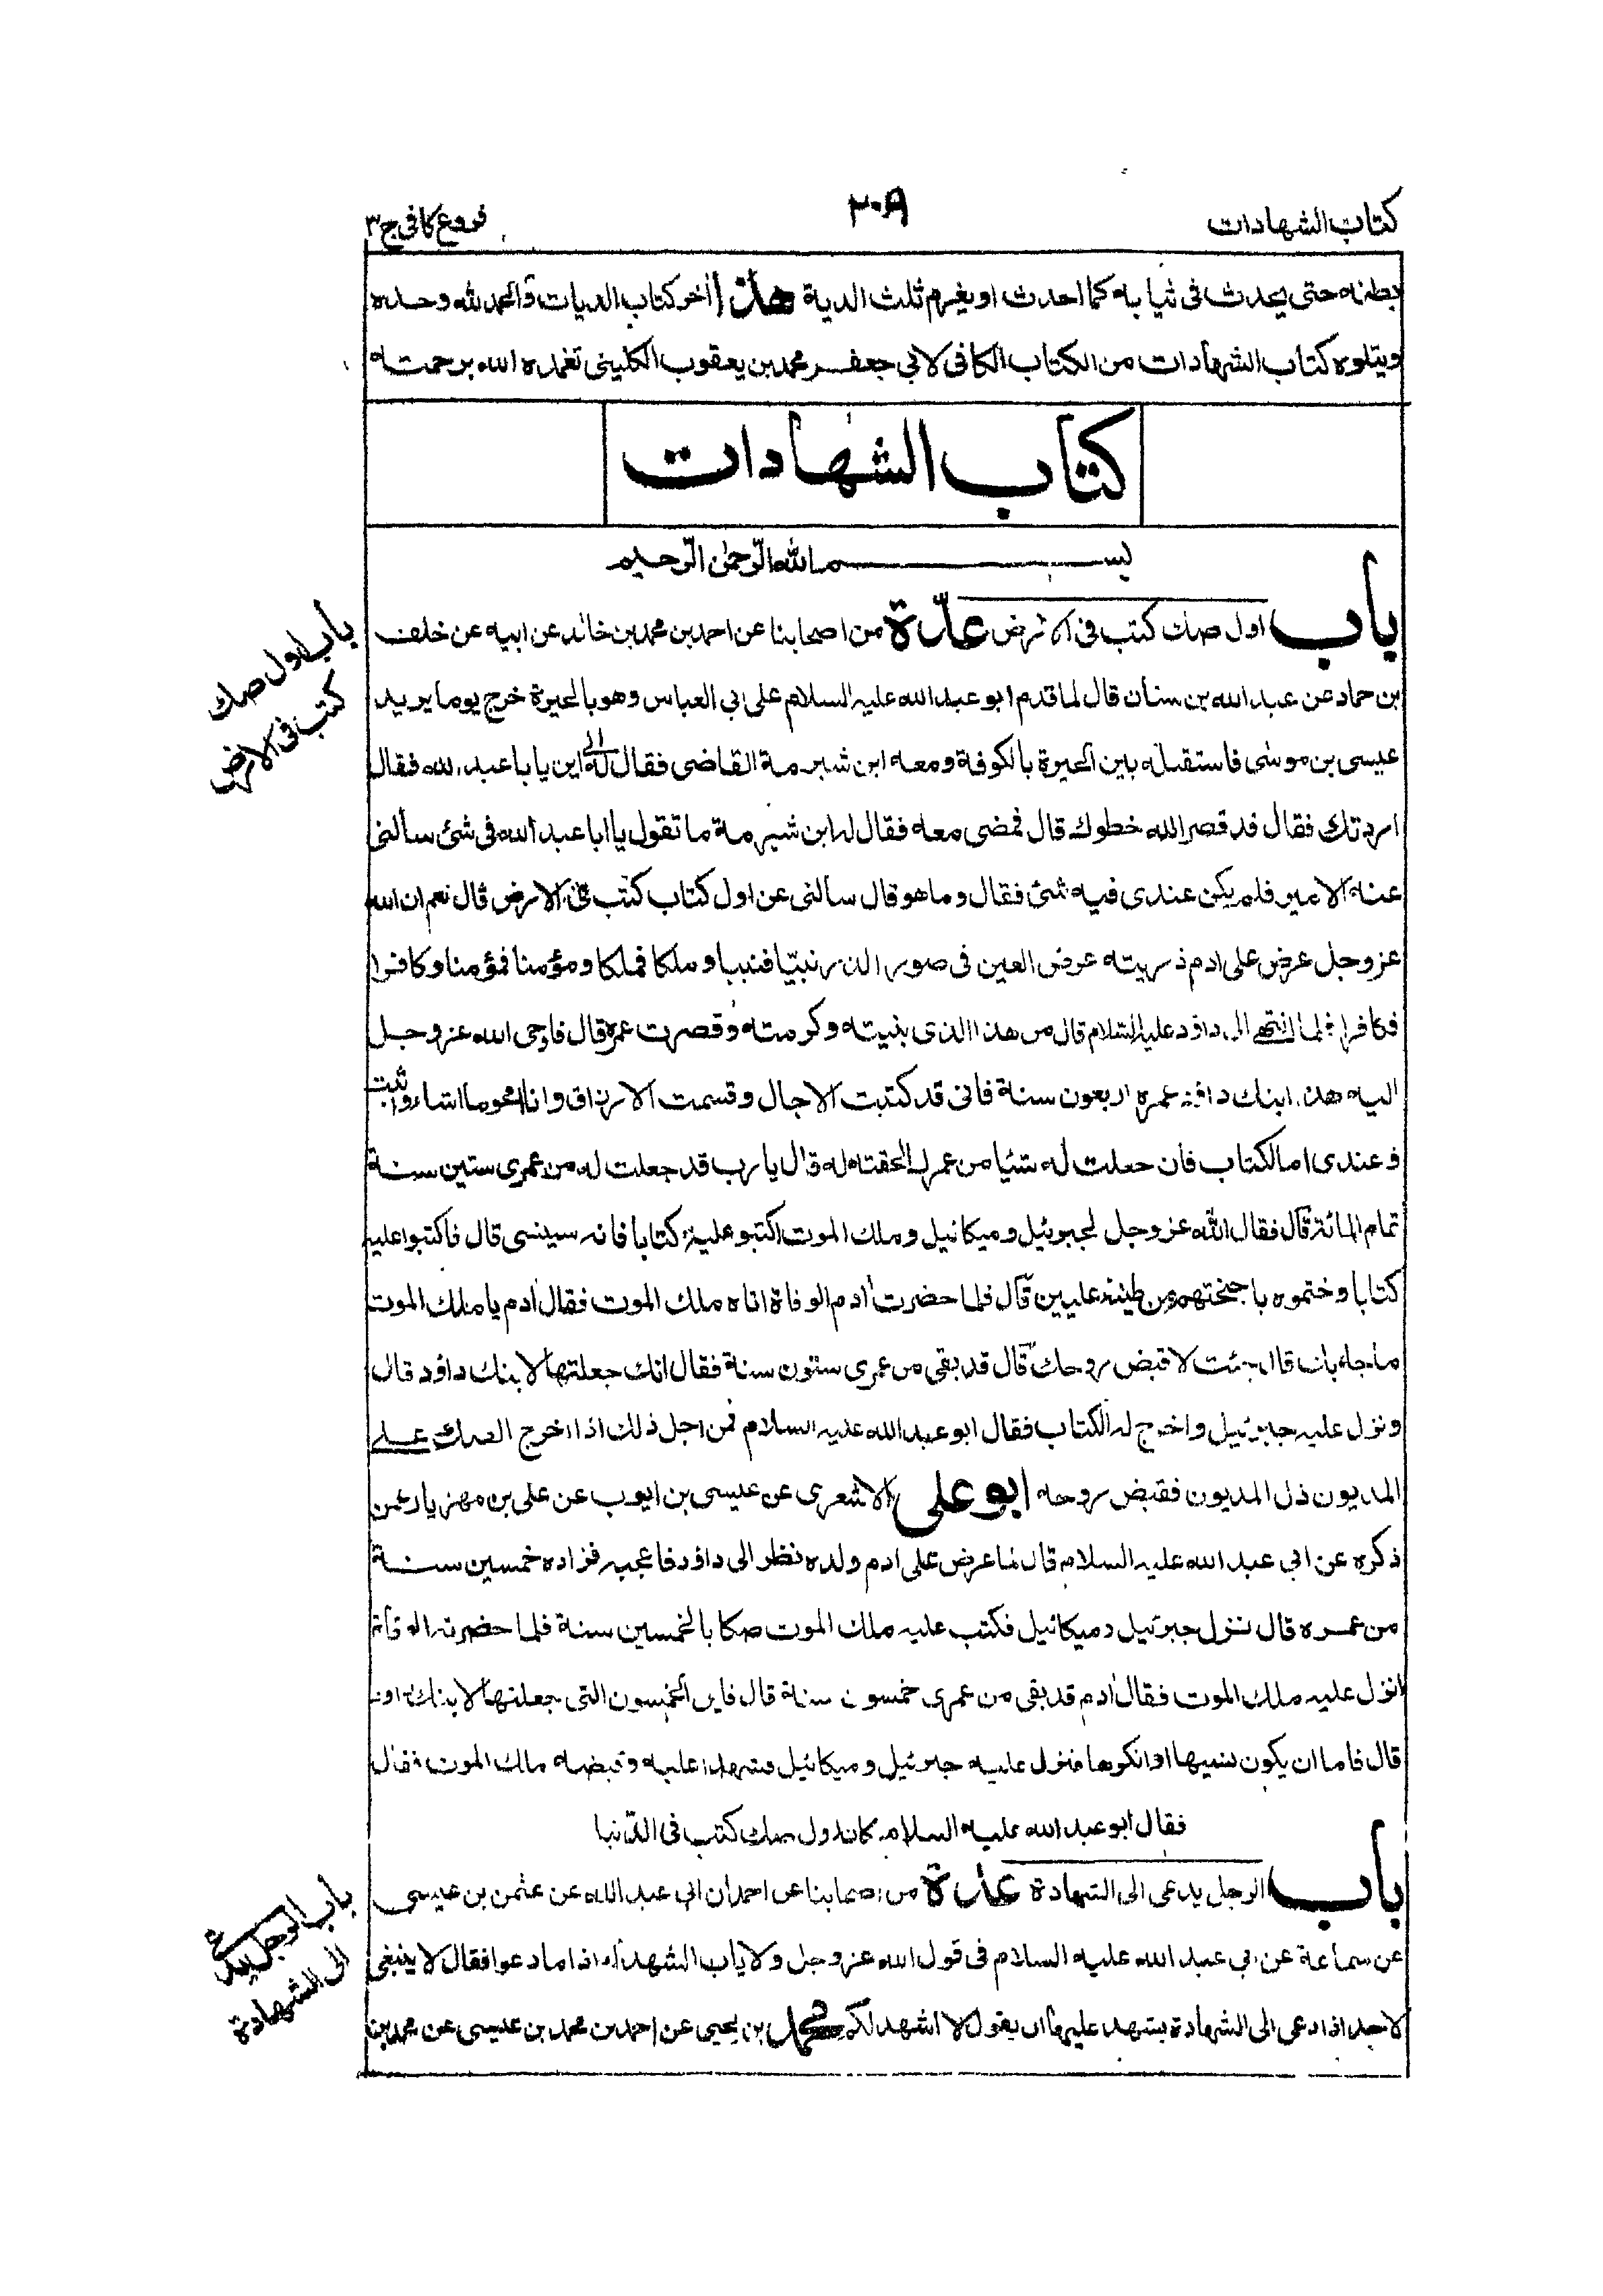 كتاب الشهادات
٢٠٩
فروع كافى ج٣
بطنه حتى يحدث فى ثيابه كما احدث او يغرم ثلث الدية هذا اٰخر كتاب الديات والحمد لله وحده
ويتلوه كتاب الشهادات من الكتاب الكافى لابي جعفر محمد بن يعقوب الكلينى تغمده الله برحمته
كتاب الشهادات
بسم الله الرّحمٰن الرّحيم
باب اول صك كتب فى الارض عدّة من اصحابنا عن احمد بن محمد بن خالد عن ابيه عن خلف
باب اول صك
كتب فى الارض
بن حماد عن عبد الله بن سنان قال لما قدم ابو عبد الله عليه السلام على ابي العباس وهو بالحيرة خرج يوما يريد
عيسى بن موسٰى فاستقبله بين الحيرة بالكوفة ومعه ابن شبرمة القاضى فقال له الى اين يا با عبد الله فقال
اردتك فقال قد قصر الله خطوك قال فمضى معه فقال له ابن شبرمة ما تقول يا ابا عبد الله فى شئ سألنى
عنه الامير فلم يكن عندى فيه شئ فقال وما هو قال سألنى عن اول كتاب كتب فى الارض قال نعم ان الله
عز وجل عرض على ادم ذريته عرض العين فى صور الذر نبيّا فنبيا وملكا فملكا ومؤمنا فمؤمنا وكافرا
فكافرا فلما انتهى الى داؤد عليه السلام قال من هذا الذى بنيته وكرمته وقصرت عمره قال فاوحى الله عز وجل
اليه هذا ابنك داؤد عمره اربعون سنة فانى قد كتبت الاجال وقسمت الارزاق وانا امحو ما اشاء واثبت
وعندى ام الكتاب فان جعلت له شيئا من عمرك الحقته له قال يا رب قد جعلت له من عمرى ستين سنة
تمام المائة قال فقال الله عز وجل لجبرئيل وميكائيل وملك الموت اكتبو عليه كتابا فانه سينسى قال فاكتبوا عليه
كتابا وختموه باجنحتهم من طينة عليين قال فلما حضرت اٰدم الوفاة اتاه ملك الموت فقال اٰدم يا ملك الموت
ما جاء بك قال جئت لاقبض روحك قال قد بقى من عمرى ستون سنة فقال انك جعلتها لابنك داؤد قال
ونزل عليه جبرئيل واخرج له الكتاب فقال ابو عبد الله عليه السلام فمن اجل ذلك اذا اخرج الصك على
المديون ذل المديون فقبض روحه ابو على الاشعرى عن عيسى بن ايوب عن على بن مهزيار عمن
ذكره عن ابي عبد الله عليه السلام قال لما عرض على ادم ولده نظر الى داؤد فاعجبه فزاده خمسين سنة
من عمره قال ننزل جبرئيل وميكائيل فكتب عليه ملك الموت صكا بالخمسين سنة فلما حضرته الوفاة
انزل عليه ملك الموت فقال اٰدم قد بقى من عمرى خمسون سنة قال فاين الخمسون التى جعلتها لابنك داود
قال فاما ان يكون نسيها او انكرها فنزل عليه جبرئيل وميكائيل فشهدا عليه وقبضه ملك الموت فقال
فقال ابو عبد الله عليه السلام كان اول صك كتب فى الدّنيا
باب الرجل يدعى الى الشهادة عدة من اصحابنا عن احمد بن ابي عبد الله عن عثمن بن عيسى
باب الرجل يدعى
الى الشهادة
عن سماعة عن ابي عبد الله عليه السلام فى قول الله عز وجل ولا ياب الشهداء اذا ما دعوا فقال لا ينبغى
لاحد اذا دعى الى الشهادة يشهد عليها ان يقول لا اشهد لكم محمد بن يحيى عن احمد بن محمد بن عيسى عن محمد بن